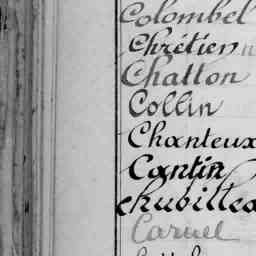 Colombel
Chrétien
Chatton
Collin
Chanteux
Cantin
Chubillea
Caruel